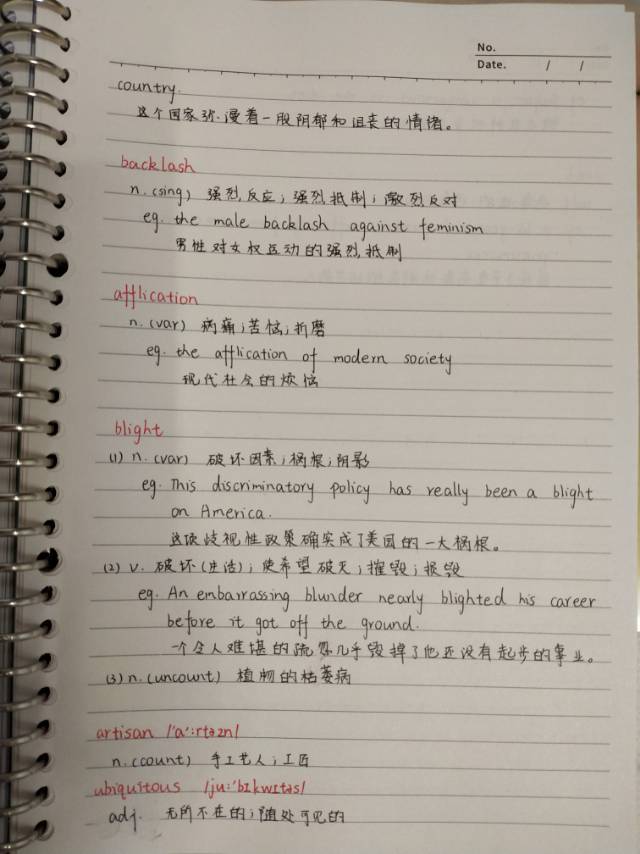 No.
Date. / /
country.
这个国家弥漫着一股阴郁和沮丧的情绪。
backlash
n. (sing) 强烈反应；强烈抵制；激烈反对
eg. the male backlash against feminism
男性对女权运动的强烈抵制
afflication
n. (var) 病痛；苦恼；折磨
eg. the afflication of modern society
现代社会的烦恼
blight
(1) n. (var) 破坏因素；祸根；阴影
eg. This discriminatory policy has really been a blight
on America.
这项歧视性政策确实成了美国的一大祸根。
(2) v. 破坏(生活)；使希望破灭；摧毁；损毁
eg. An embarrassing blunder nearly blighted his career
before it got off the ground.
一个令人难堪的疏忽几乎毁掉了他还没有起步的事业。
(3) n. (uncount) 植物的枯萎病
artisan /'a':rtəzn/
n. (count) 手工艺人；工匠
ubiquitous /ju:'bɪkwɪtəs/
adj. 无所不在的；随处可见的